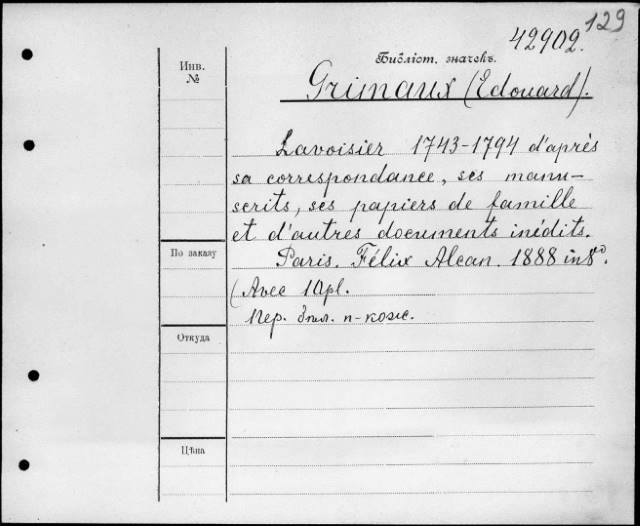 129
42902.
Библіот. значекъ.
Инв.
№
Grimaux (Edouard).
Lavoisier 1743-1794 d'après
sa correspondance, ses manu-
scrits, ses papiers de famille
et d'autres documents inédits.
По заказу
Paris. Félix Alcan. 1888 in 8º.
(Avec 10 pl.
Пер. п-кож.
Откуда
Цѣна